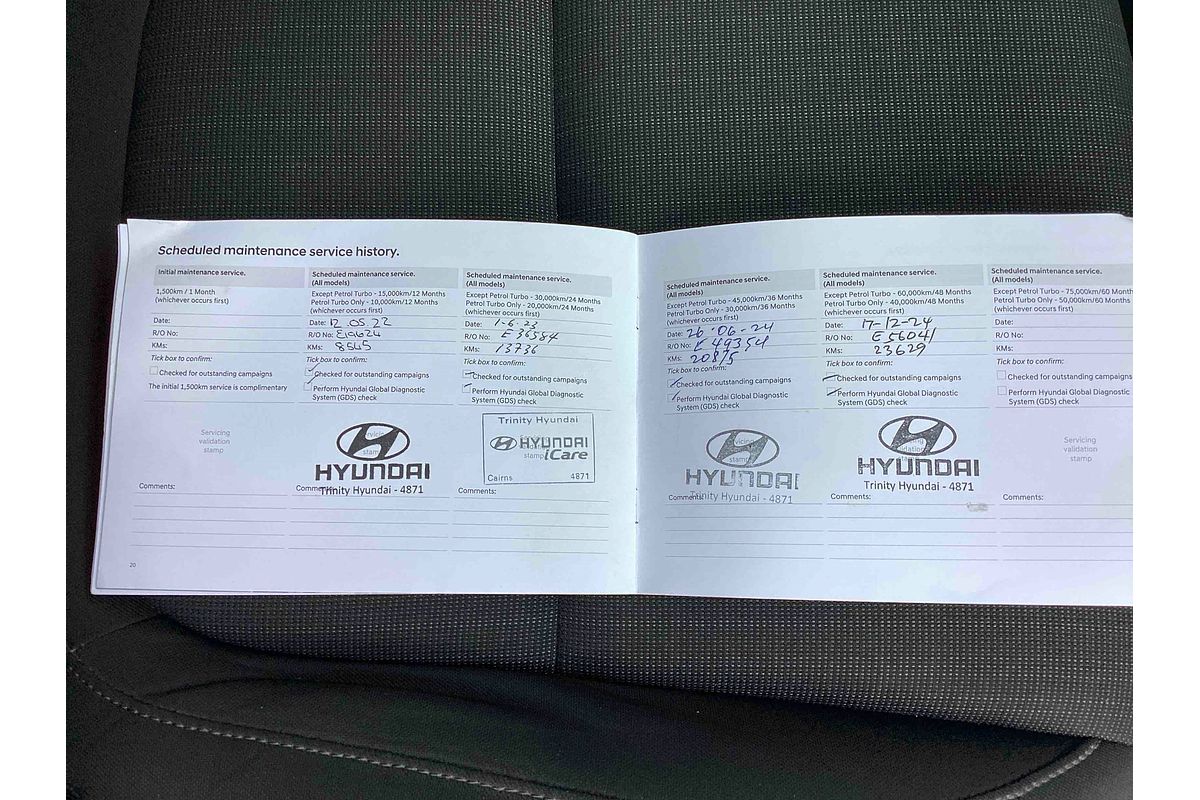 Scheduled maintenance service history.
Initial maintenance service.
1,500km / 1 Month
(whichever occurs first)
Date:
R/O No:
KMs:
Tick box to confirm:
Checked for outstanding campaigns
The initial 1,500km service is complimentary
Servicing
validation
stamp
Comments:
20
Scheduled maintenance service.
(All models)
Except Petrol Turbo - 15,000km/12 Months
Petrol Turbo Only - 10,000km/12 Months
(whichever occurs first)
Date: 12 05 22
R/O No: E19624
KMs: 8545
Tick box to confirm:
Checked for outstanding campaigns
Perform Hyundai Global Diagnostic
System (GDS) check
HYUNDAI
Trinity Hyundai - 4871
Comments:
Scheduled maintenance service.
(All models)
Except Petrol Turbo - 30,000km/24 Months
Petrol Turbo Only - 20,000km/24 Months
(whichever occurs first)
Date: 1-6-23
R/O No: E 36584
KMs: 13736
Tick box to confirm:
Checked for outstanding campaigns
Perform Hyundai Global Diagnostic
System (GDS) check
Trinity Hyundai
HYUNDAI
stamp iCare
Cairns 4871
Comments:
Scheduled maintenance service.
(All models)
Except Petrol Turbo - 45,000km/36 Months
Petrol Turbo Only - 30,000km/36 Months
(whichever occurs first)
Date: 26.06-24
R/O No: E 49354
KMs: 20875
Tick box to confirm:
Checked for outstanding campaigns
Perform Hyundai Global Diagnostic
System (GDS) check
HYUNDAI
Trinity Hyundai - 4871
Comments:
Scheduled maintenance service.
(All models)
Except Petrol Turbo - 60,000km/48 Months
Petrol Turbo Only - 40,000km/48 Months
(whichever occurs first)
Date: 17-12-24
R/O No: E56041
KMs: 23629
Tick box to confirm:
Checked for outstanding campaigns
Perform Hyundai Global Diagnostic
System (GDS) check
HYUNDAI
Trinity Hyundai - 4871
Comments:
Scheduled maintenance service.
(All models)
Except Petrol Turbo - 75,000km/60 Month
Petrol Turbo Only - 50,000km/60 Months
(whichever occurs first)
Date:
R/O No:
KMs:
Tick box to confirm:
Checked for outstanding campaigns
Perform Hyundai Global Diagnostic
System (GDS) check
Servicing
validation
stamp
Comments: